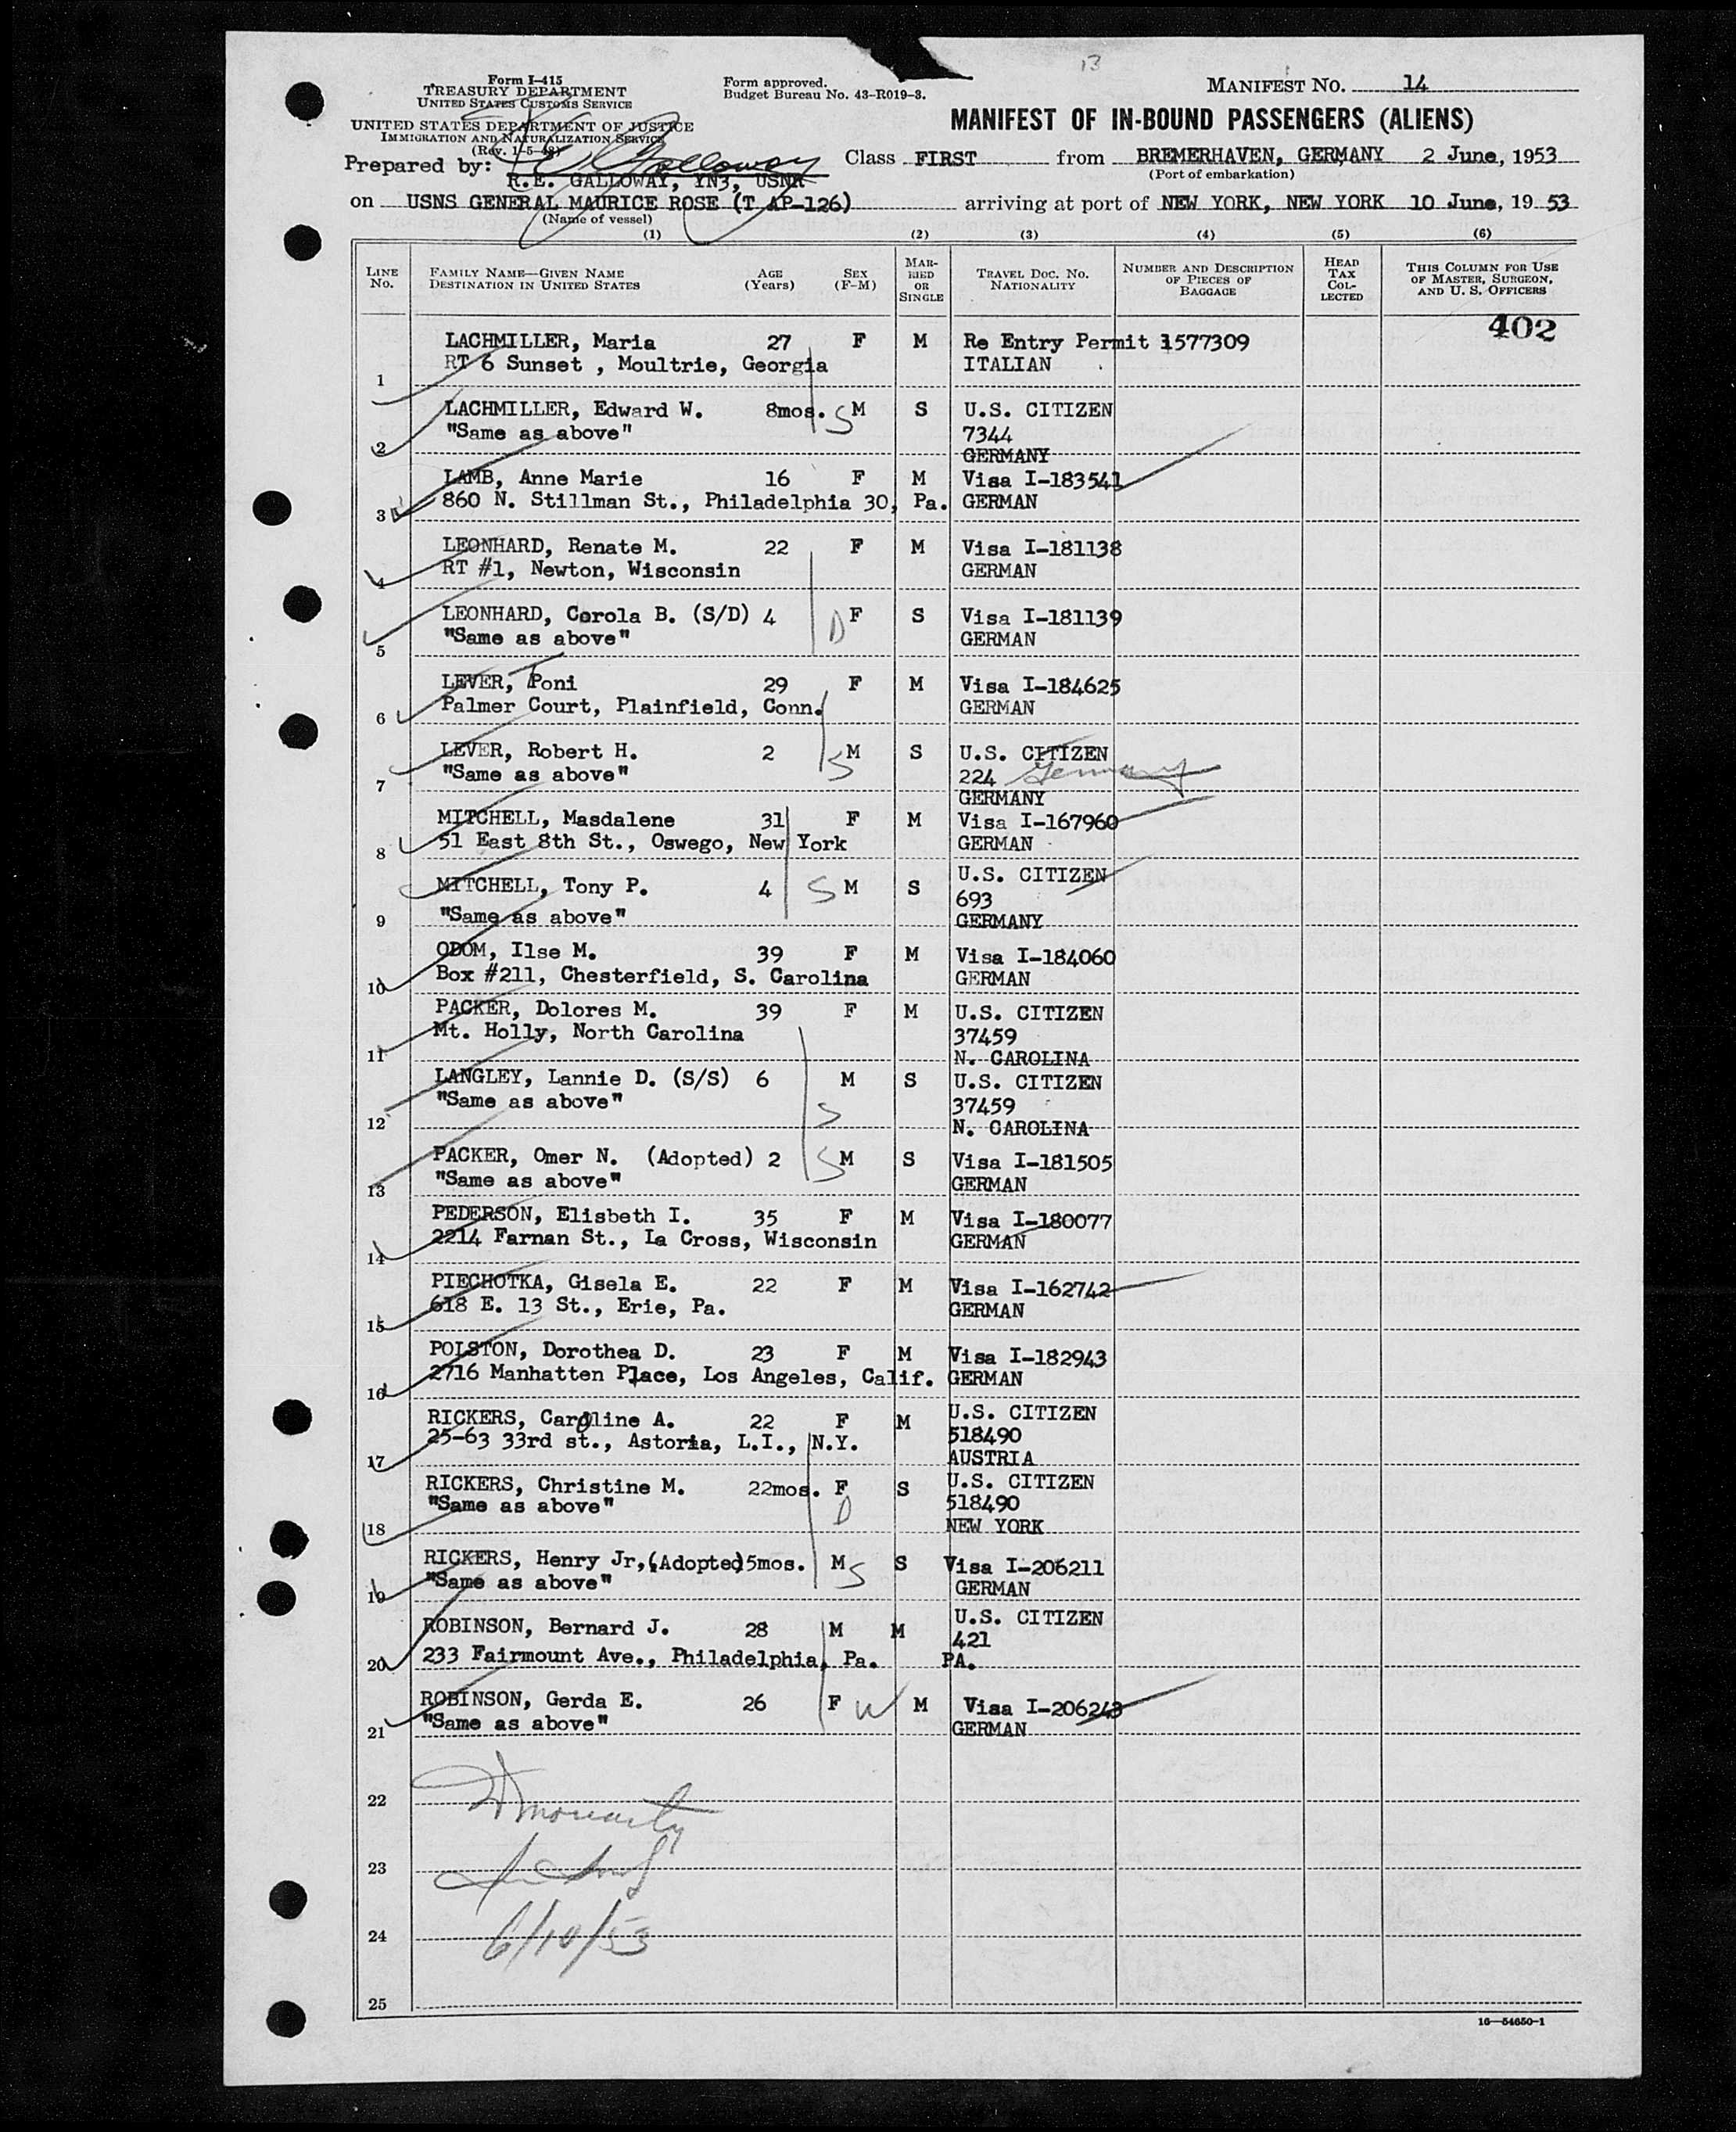 13
Form I-415
TREASURY DEPARTMENT
UNITED STATES CUSTOMS SERVICE
UNITED STATES DEPARTMENT OF JUSTICE
IMMIGRATION AND NATURALIZATION SERVICE
(Rev. 1-5-48)
Form approved.
Budget Bureau No. 43-R019-3.
MANIFEST NO. 14
MANIFEST OF IN-BOUND PASSENGERS (ALIENS)
Prepared by: R.E. GALLOWAY, YN3, USNR
Class FIRST from BREMERHAVEN, GERMANY 2 June, 1953
(Port of embarkation)
on USNS GENERAL MAURICE ROSE (T AP-126) arriving at port of NEW YORK, NEW YORK 10 June, 19 53
(Name of vessel)
(1) (2) (3) (4) (5) (6)
LINE No. FAMILY NAME—GIVEN NAME DESTINATION IN UNITED STATES AGE (Years) SEX (F-M) MARRIED OR SINGLE TRAVEL DOC. NO. NATIONALITY NUMBER AND DESCRIPTION OF PIECES OF BAGGAGE HEAD TAX COLLECTED THIS COLUMN FOR USE OF MASTER, SURGEON, AND U. S. OFFICERS
402
LACHMILLER, Maria 27 F M Re Entry Permit 1577309
1 RT 6 Sunset , Moultrie, Georgia ITALIAN
LACHMILLER, Edward W. 8mos. S M S U.S. CITIZEN
2 "Same as above" 7344
GERMANY
LAMB, Anne Marie 16 F M Visa I-183541
3 860 N. Stillman St., Philadelphia 30, Pa. GERMAN
LEONHARD, Renate M. 22 F M Visa I-181138
4 RT #1, Newton, Wisconsin GERMAN
LEONHARD, Corola B. (S/D) 4 D F S Visa I-181139
5 "Same as above" GERMAN
LEVER, Poni 29 F M Visa I-184625
6 Palmer Court, Plainfield, Conn. GERMAN
LEVER, Robert H. 2 S M S U.S. CITIZEN
7 "Same as above" 224 Germany
GERMANY
MITCHELL, Masdalene 31 F M Visa I-167960
8 51 East 8th St., Oswego, New York GERMAN
MITCHELL, Tony P. 4 S M S U.S. CITIZEN
693
9 "Same as above" GERMANY
ODOM, Ilse M. 39 F M Visa I-184060
10 Box #211, Chesterfield, S. Carolina GERMAN
PACKER, Dolores M. 39 F M U.S. CITIZEN
11 Mt. Holly, North Carolina 37459
N. CAROLINA
LANGLEY, Lannie D. (S/S) 6 M S U.S. CITIZEN
12 "Same as above" S 37459
N. CAROLINA
PACKER, Omer N. (Adopted) 2 S M S Visa I-181505
13 "Same as above" GERMAN
PEDERSON, Elisbeth I. 35 F M Visa I-180077
14 2214 Farnan St., La Cross, Wisconsin GERMAN
PIECHOTKA, Gisela E. 22 F M Visa I-162742
15 618 E. 13 St., Erie, Pa. GERMAN
POLSTON, Dorothea D. 23 F M Visa I-182943
16 2716 Manhatten Place, Los Angeles, Calif. GERMAN
RICKERS, Caroline A. 22 F M U.S. CITIZEN
17 25-63 33rd st., Astoria, L.I., N.Y. 518490
AUSTRIA
RICKERS, Christine M. 22mos. F S U.S. CITIZEN
18 "Same as above" D 518490
NEW YORK
RICKERS, Henry Jr,(Adopted)5mos. M S S Visa I-206211
19 "Same as above" GERMAN
ROBINSON, Bernard J. 28 M M U.S. CITIZEN
421
20 233 Fairmount Ave., Philadelphia, Pa. PA.
ROBINSON, Gerda E. 26 F W M Visa I-206243
21 "Same as above" GERMAN
22
23
24 6/10/53
25
16—54650-1